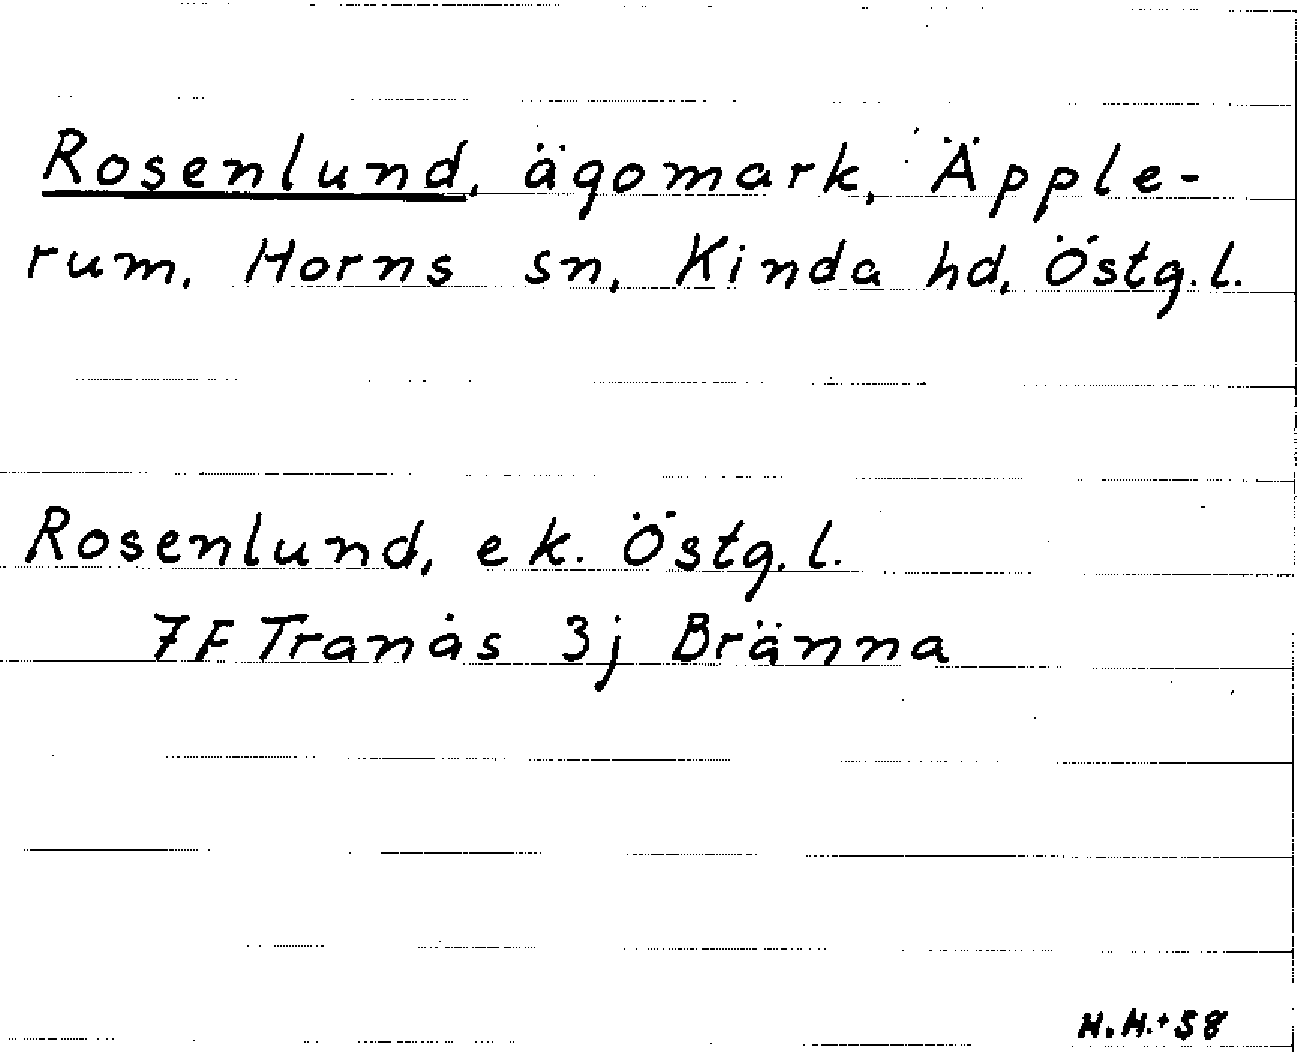 Rosenlund, ägomark, Äpple-
rum, Horns sn, Kinda hd, Östg.l.
Rosenlund, ek. Östg.l.
7F Tranås 3j Bränna
H.H. 58